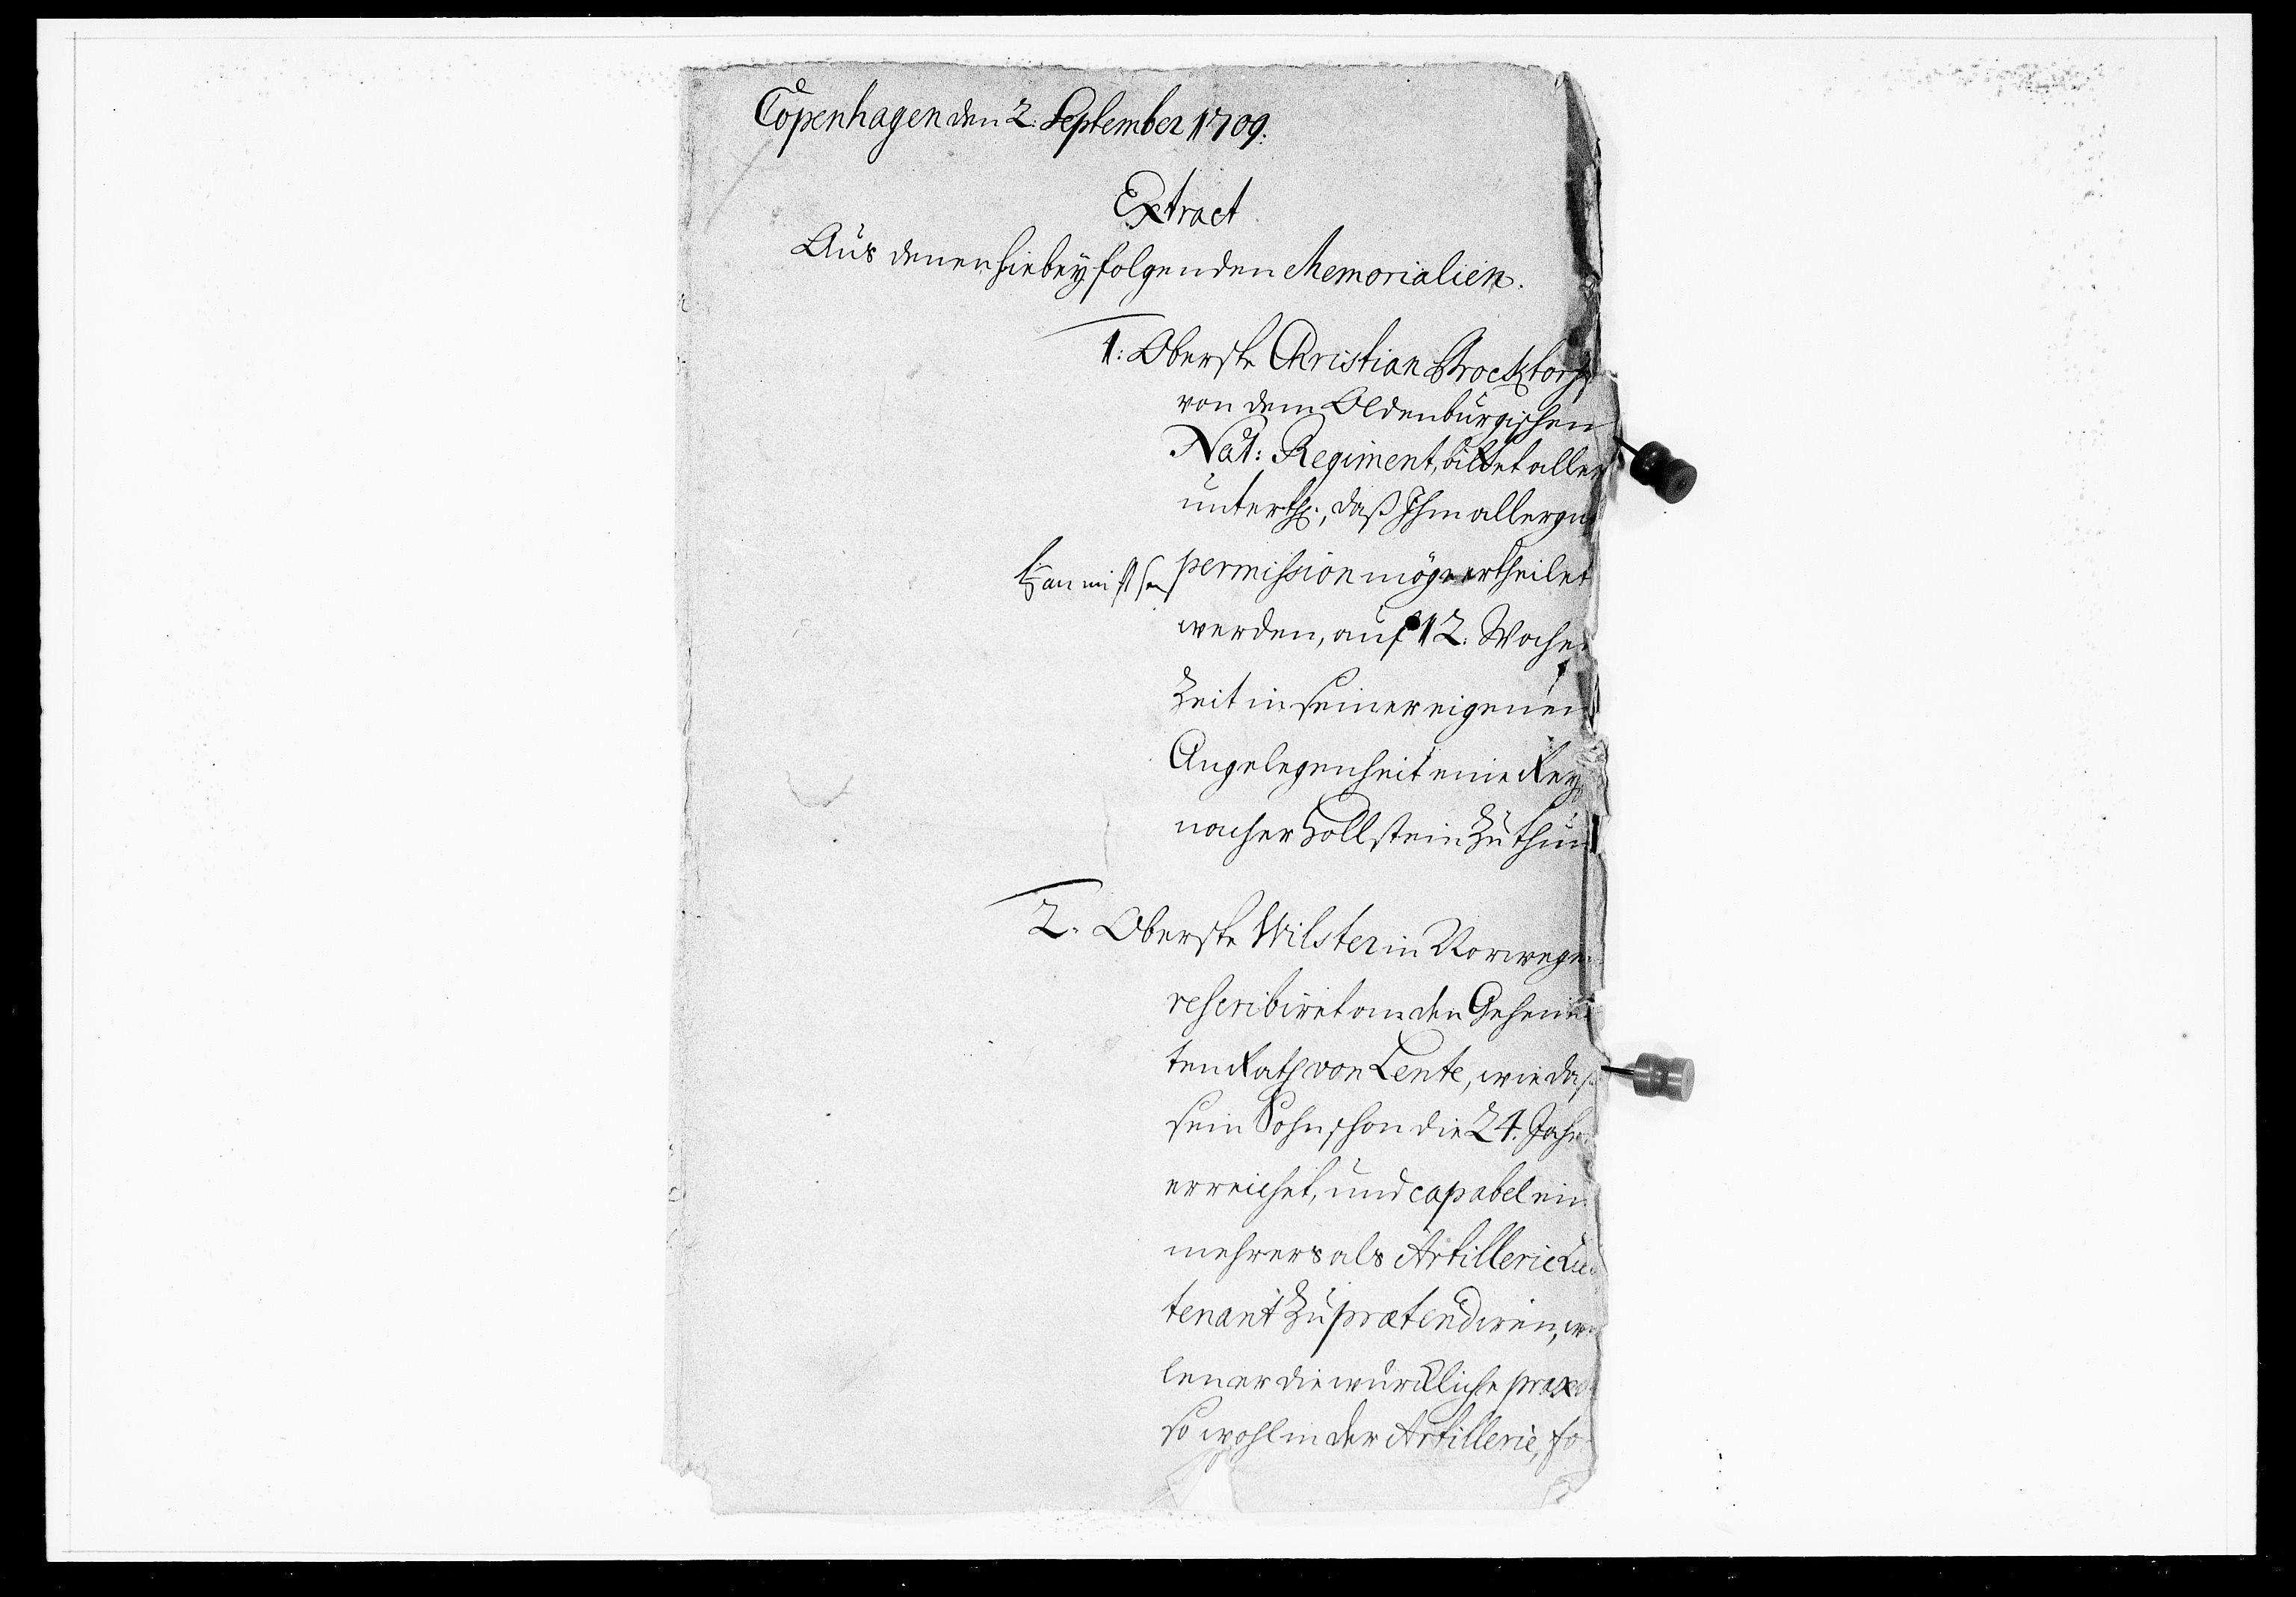 Copenhagen den 2. September 1709.
Extract
Aus denen hiebey folgenden Memorialien.
1: Oberste Christian Brocktorff
von dem Oldenburgischen
Nat: Regiment, bittet aller
unterth:, daß Ihm allergn
permission möge ertheilet
werden, auf 12. Wochen
Zeit in seiner eigenen
Angelegenheit eine Reyse
nacher Hollstein zu thun
2. Oberste Wilster in Norwegen
rescribiret an den Geheim
ten Rath von Lente, wie daß
sein Sohn schon die 24. Jahr
erreichet, und capabel ein
mehrers als Artillerie Lieu
tenant zu prætendiren, we
len er die würckliche praxin
so wohl in der Artillerie, so